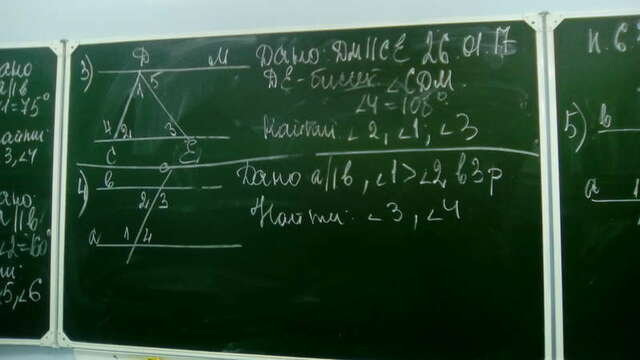 ано
a∥b
∠1=75°
айти:
3,∠4
3)
Д М
5
1
4 2 3
С Е
Дано: ДМ∥СЕ 26.01.17
ДЕ-биссек ∠СДМ.
∠4=108°
Найти ∠2, ∠1, ∠3
4)
в
2 3
а 1 4
Дано a∥b, ∠1>∠2, в 3 р
Найти: ∠3, ∠4
ано:
a∥b
∠5,∠6
5)
в
а